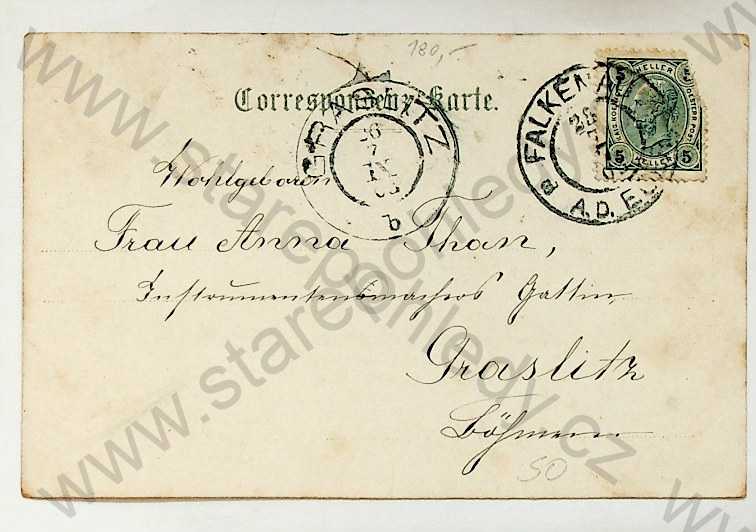 180,-
Correspondenz-Karte.
GRASLITZ
26
7
IX
b
FALKENAU
A.D. EGER
a
5 HELLER 5
5 HELLER 5
Wohlgeboren
Frau Anna Than,
Instrumentenmachers Gattin,
Graslitz
Böhmen
50
www.starepohledy.cz